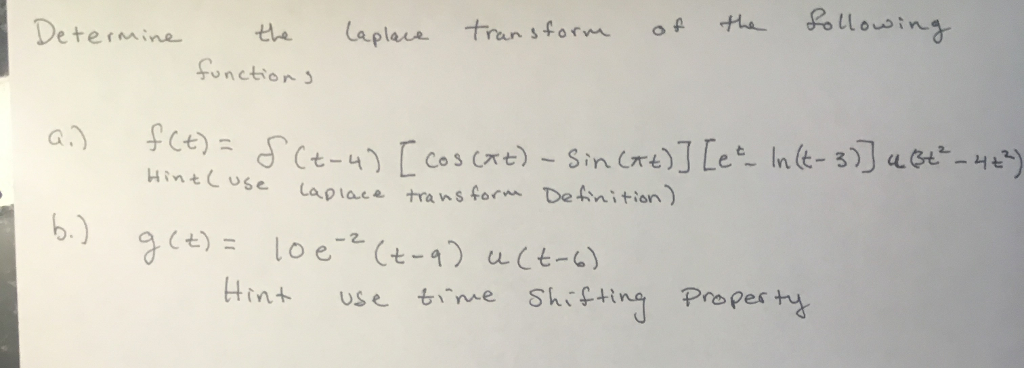 Determine the Laplace transform of the following
functions
a.) f(t) = δ(t-4) [cos(πt) - Sin(πt)] [e^t - ln(t-3)] u(3t² - 4t²)
Hint(use Laplace transform Definition)
b.) g(t) = 10e⁻² (t-9) u(t-6)
Hint use time Shifting Property